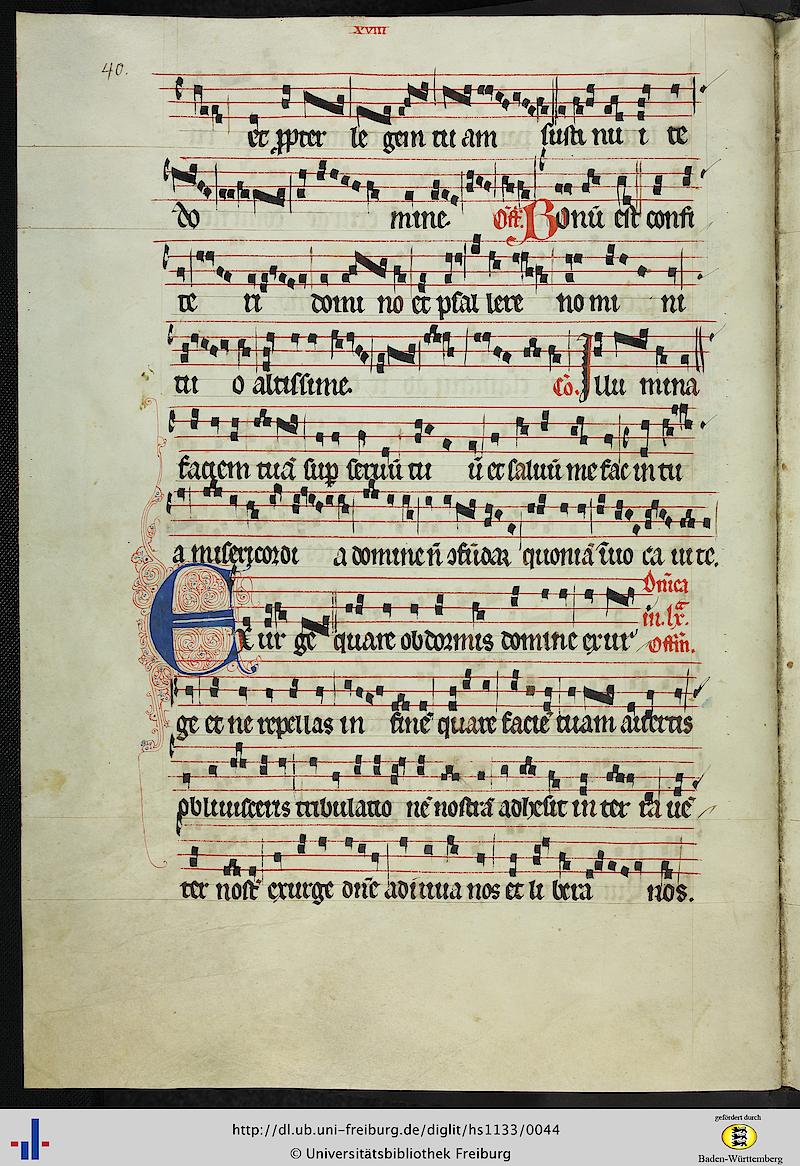 XVIII
40.
et ꝓpter le gem tu am susti nu i te
do mine. Off. Bonū est confi
te ri domi no et psal lere no mi ni
tu o altissime. Cō. Illu mina
faciem tuā sup seruū tu ū et saluū me fac in tu
a misericordi a domine quoniā īuo ca ui te.
Dnica
in. lx.
Exur ge quare obdormis domine exur Offm.
ge et ne repellas in finē quare faciē tuam auertis
obliuisceris tribulatio nē nostrā adhesit in ter ra uē
ter nost exurge dñe adiuua nos et li bera nos.
http://dl.ub.uni-freiburg.de/diglit/hs1133/0044
© Universitätsbibliothek Freiburg
gefördert durch
Baden-Württemberg